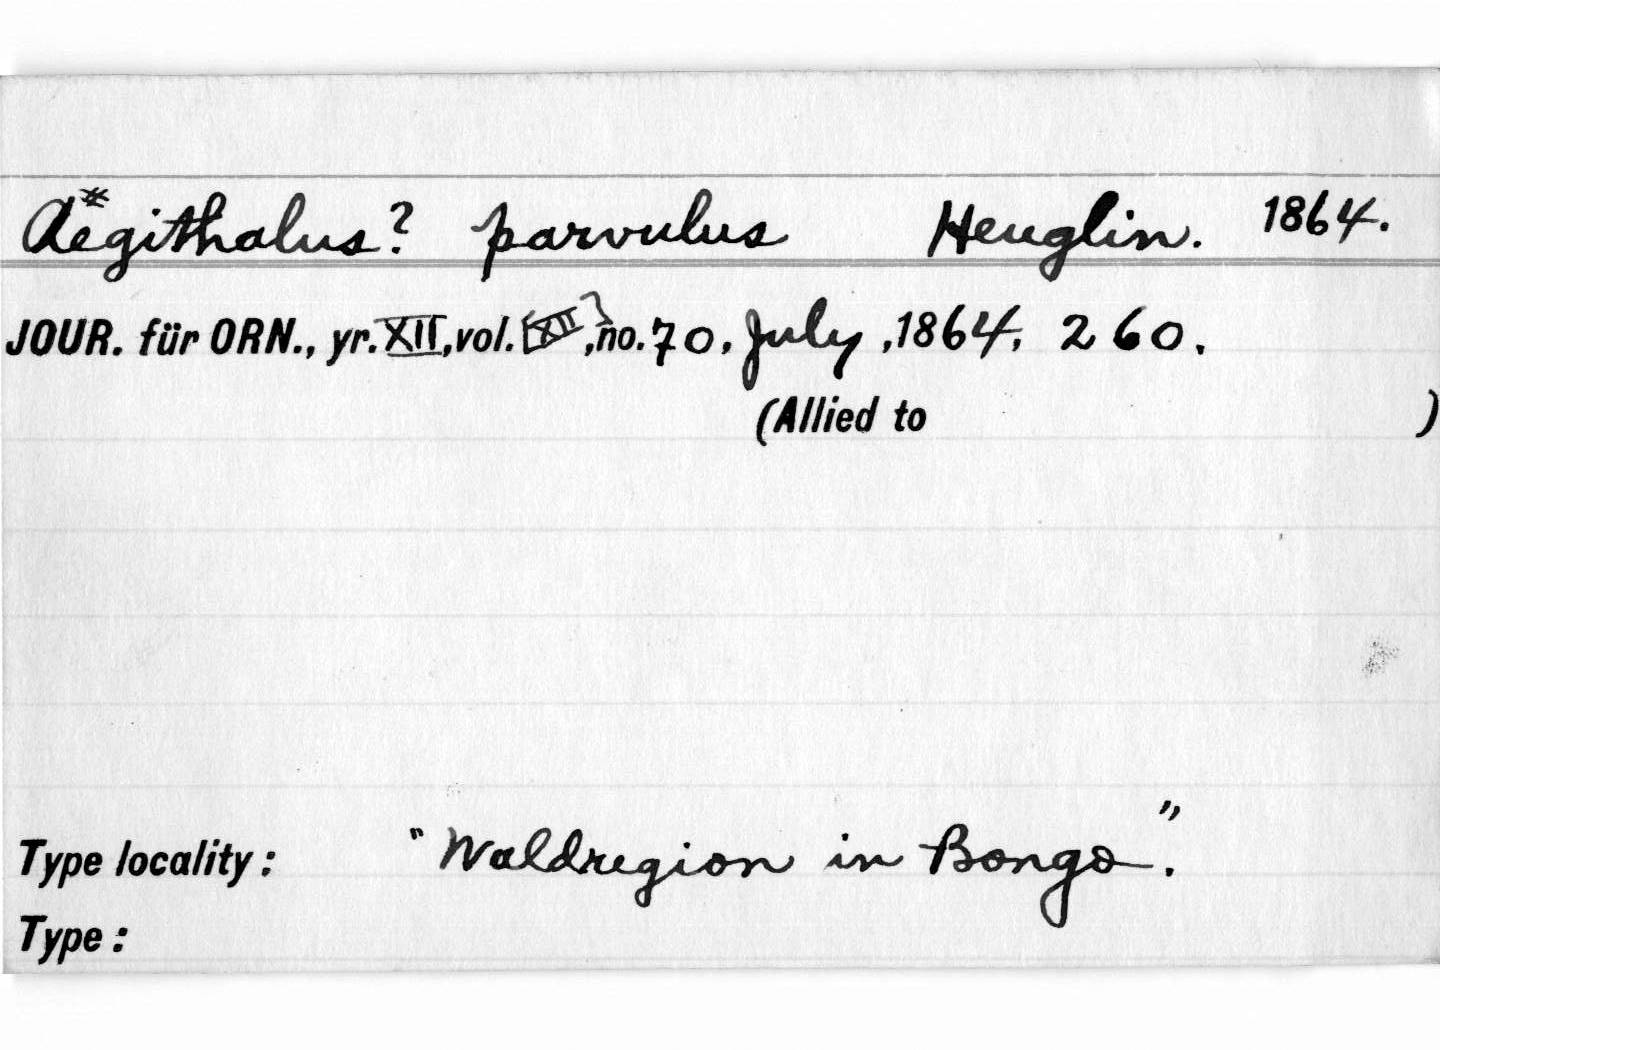 Aegithalus? parvulus Heuglin. 1864.
JOUR. für ORN., yr. XII, vol. [XII], no. 70, July, 1864, 260.
(Allied to )
Type locality: "Waldregion in Bongo".
Type: